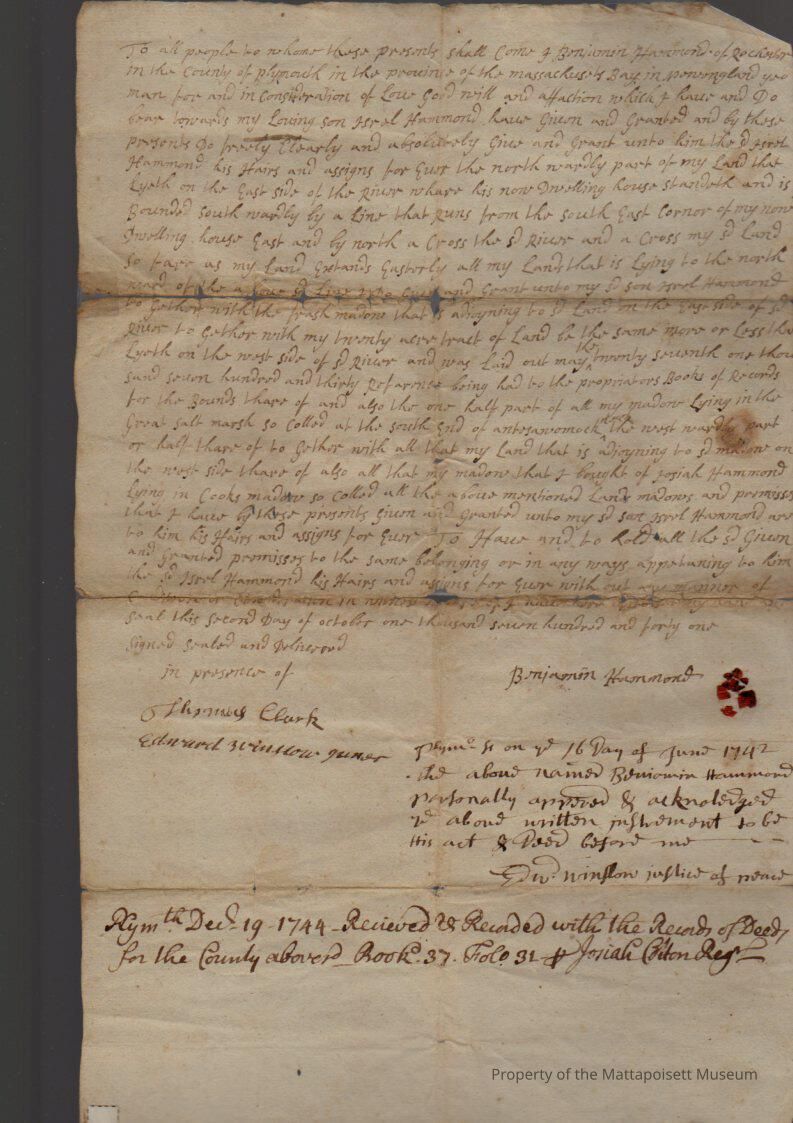 To all people to whome these presents shall Come I Benjamin Hammond of Rochester
in the County of plymouth in the province of the massachusets Bay in newengland yeo
man for and in Consideration of Love Good will and affaction which I have and Do
bear towards my Loving son Isrel Hammond have Given and Granted and by these
presents Do freely Clearly and absolutely Give and Grant unto him the sd Isrel
Hammond his Hairs and assigns for Ever the north wardly part of my Land that
Lyeth on the East side of the River whare his now Dwelling house standeth and is
Bounded south wardly by a Line that Runs from the south East Corner of my now
Dwelling house East and by north a Cross the sd River and a Cross my sd Land
so fare as my Land Extands Easterly all my Land that is Lying to the north
ward of the a bove sd Line I Do Give and Grant unto my sd son Isrel Hammond
to Gether with the frash madow that is adjoyning to sd Land on the East side of sd
River to Gether with my twenty acre tract of Land be the same more or Less tha
Lyeth on the west side of sd River and was Laid out may the twenty seventh one thou
sand seven hundred and thirty Referance being had to the propriators Books of Records
for the Bounds thare of and also the one half part of all my madow Lying in the
Great salt marsh so Colled at the south End of antesawomock the west wardly part
or half thare of to Gether with all that my Land that is adjoyning to sd madow on
the west side thare of also all that my madow that I bought of Josiah Hammond
Lying in Cooks madow so Colled all the above mentioned Land madows and premisses
that I have by these presents Given and Granted unto my sd son Isrel Hammond are
to him his Hairs and assigns for Ever To Have and to hold all the sd Given
and Granted premisses to the same belonging or in any ways appetaning to him
the sd Isrel Hammond his Hairs and assigns for Ever with out any manner of
Condition or in witness I have here my hand and
seal this second Day of october one thousand seven hundred and forty one
signed sealed and Delivered
in presence of
Benjamin Hammond
Thomas Clark
Edward Winslow juner
Plymo ss on ye 16 Day of June 1742
the above named Benjamin Hammond
personally appered & acknoledged
ye above written instrement to be
His act & Deed before me
Edwd winslow justice of peace
Plymth Decr 19 - 1744 - Recieved & Recorded with the Records of Deeds
for the County abovesd Book 37. Folo 31 Josiah Cotton Regr
Property of the Mattapoisett Museum